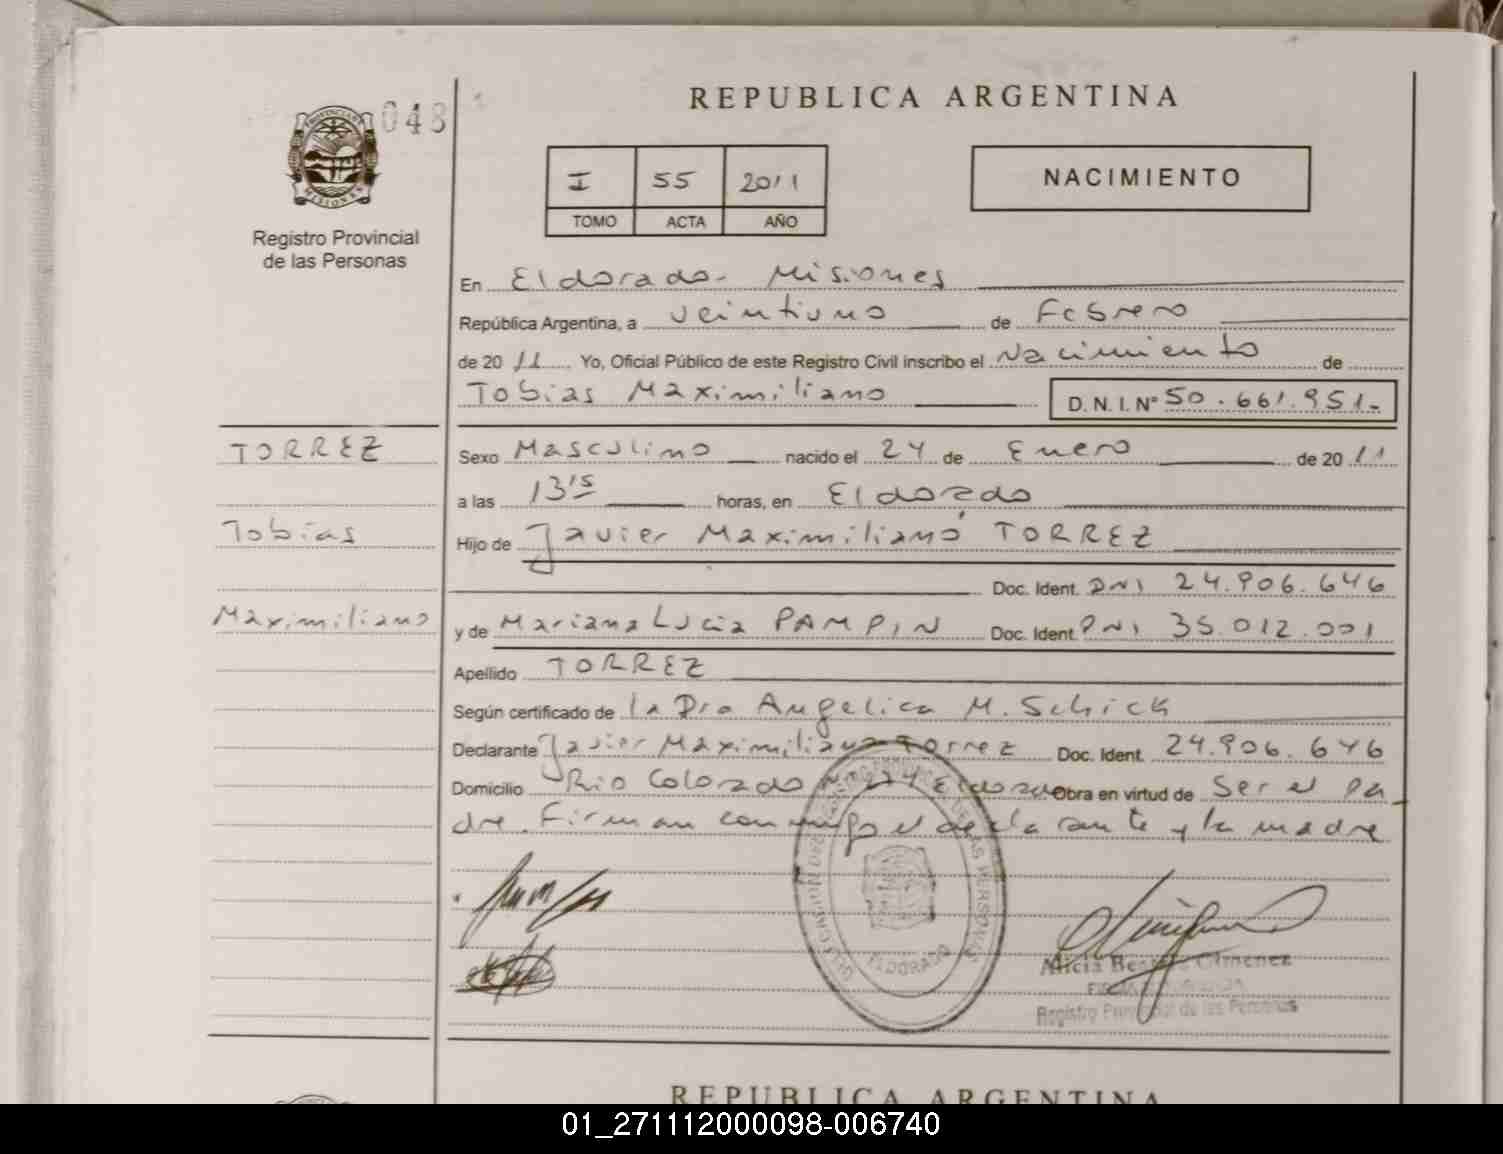 048
REPUBLICA ARGENTINA
PROVINCIA DE MISIONES
I 55 2011
TOMO ACTA AÑO
NACIMIENTO
Registro Provincial
de las Personas
En Eldorado - Misiones
República Argentina, a veintiuno de Febrero
de 2011 Yo, Oficial Público de este Registro Civil inscribo el Nacimiento de
Tobias Maximiliano D.N.I. Nº 50.661.951.-
TORREZ
Tobias
Maximiliano
Sexo Masculino nacido el 24 de Enero de 2011
a las 13'15 horas, en Eldorado
Hijo de Javier Maximiliano TORREZ
Doc. Ident. DNI 24.906.646
y de Mariana Lucia PAMPIN Doc. Ident. DNI 35.012.001
Apellido TORREZ
Según certificado de la Dra Angelica M. Schick
Declarante Javier Maximiliano Torrez Doc. Ident. 24.906.646
Domicilio Rio Colorado Eldorado Obra en virtud de Ser el pa-
dre. Firman conmigo el declarante y la madre
ELDORADO
Alicia Gimenez
Registro Provincial de las Personas
REPUBLICA ARGENTINA
01_271112000098-006740